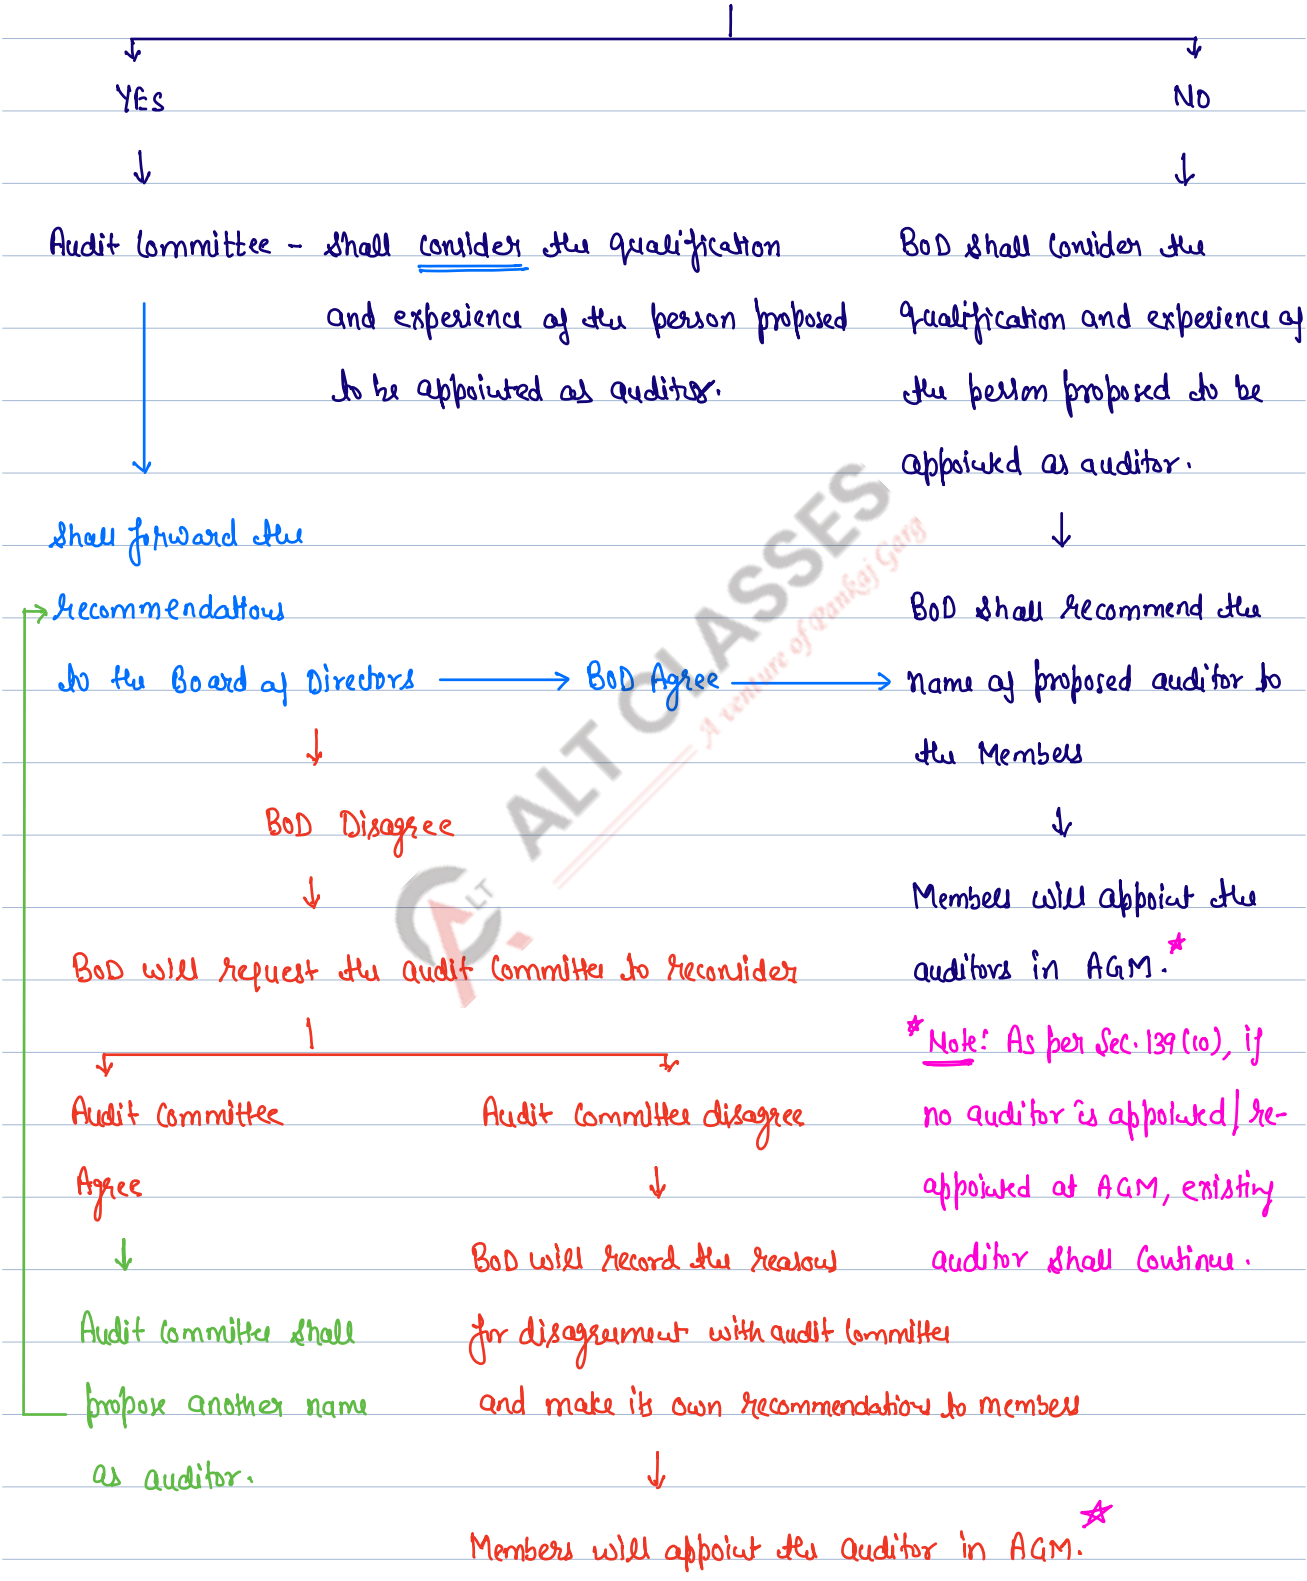 YES
NO
Audit Committee - Shall consider the qualification
and experience of the person proposed
to be appointed as auditor.
BOD Shall Consider the
qualification and experience of
the person proposed to be
appointed as auditor.
Shall forward the
recommendations
to the Board of Directors
BOD Agree
BOD Shall recommend the
name of proposed auditor to
the Members
BOD Disagree
Members will appoint the
auditors in AGM.*
BOD will request the audit Committee to reconsider
*Note: As per Sec. 139(10), if
no auditor is appointed/re-
appointed at AGM, existing
auditor Shall Continue.
Audit Committee
Agree
Audit Committee disagree
Audit Committee Shall
propose another name
as auditor.
BOD will record the reasons
for disagreement with audit Committee
and make its own recommendations to members
Members will appoint the auditor in AGM.*
ALT CLASSES
A venture of Pankaj Garg
ALT